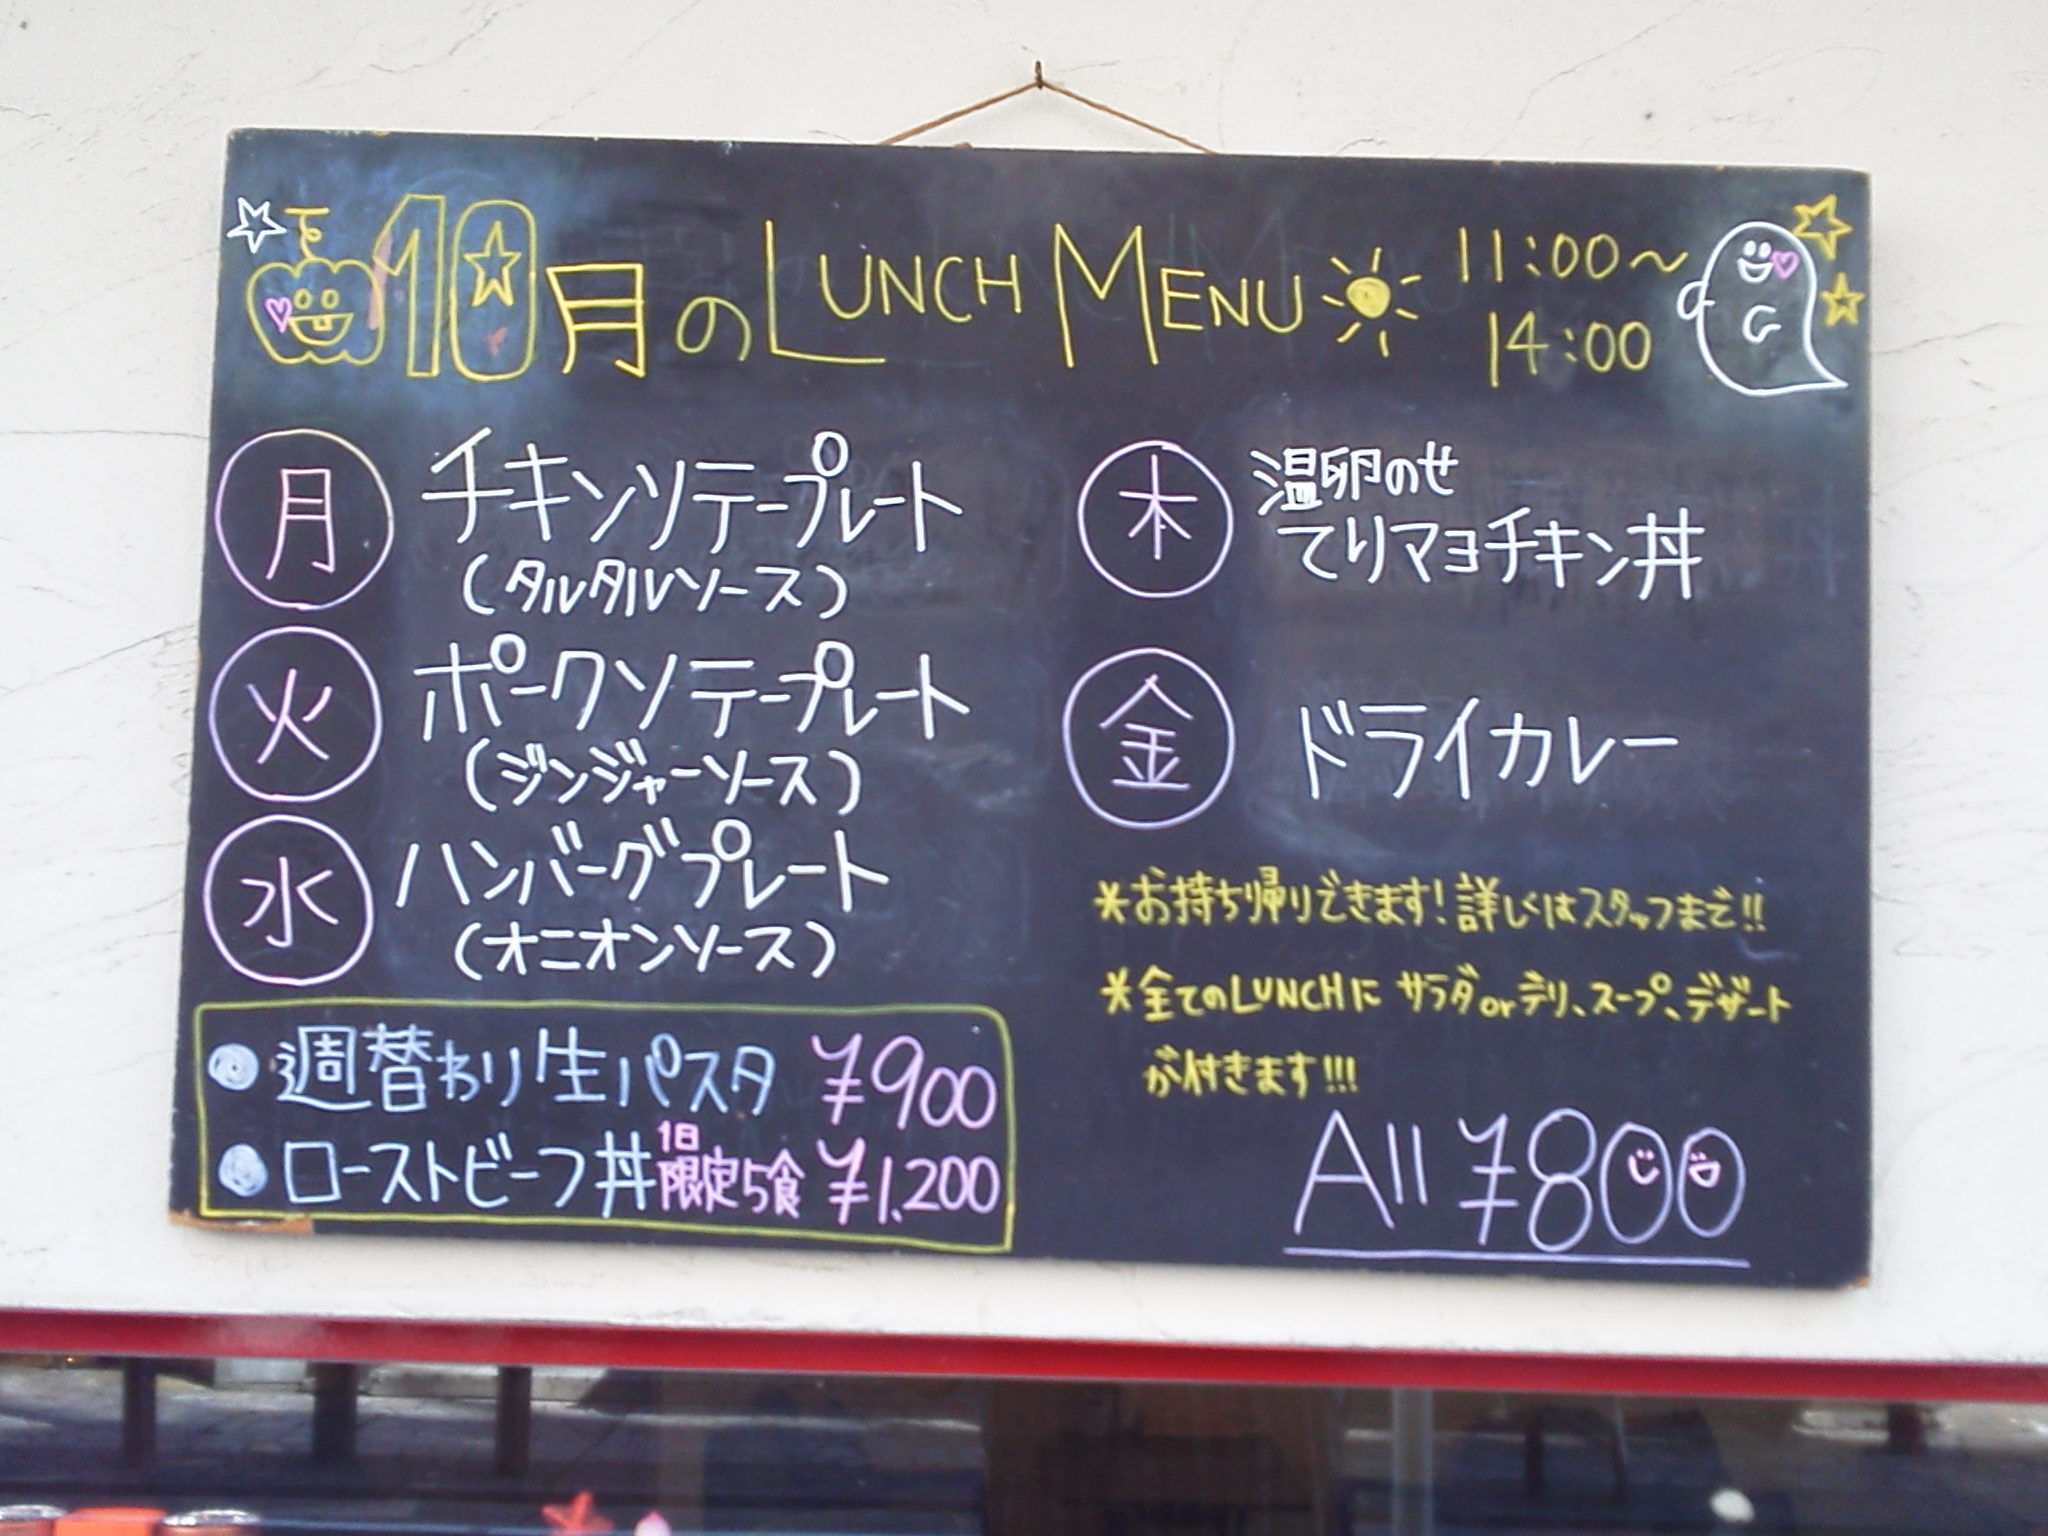 10月のLUNCH MENU 11:00〜
14:00
月 チキンソテープレート
(タルタルソース)
火 ポークソテープレート
(ジンジャーソース)
水 ハンバーグプレート
(オニオンソース)
木 温卵のせ
てりマヨチキン丼
金 ドライカレー
*お持ち帰りできます!詳しくはスタッフまで!!
*全てのLUNCHに サラダorデリ、スープ、デザート
が付きます!!!
All ¥800
●週替わり生パスタ ¥900
●ローストビーフ丼 1日限定5食 ¥1,200